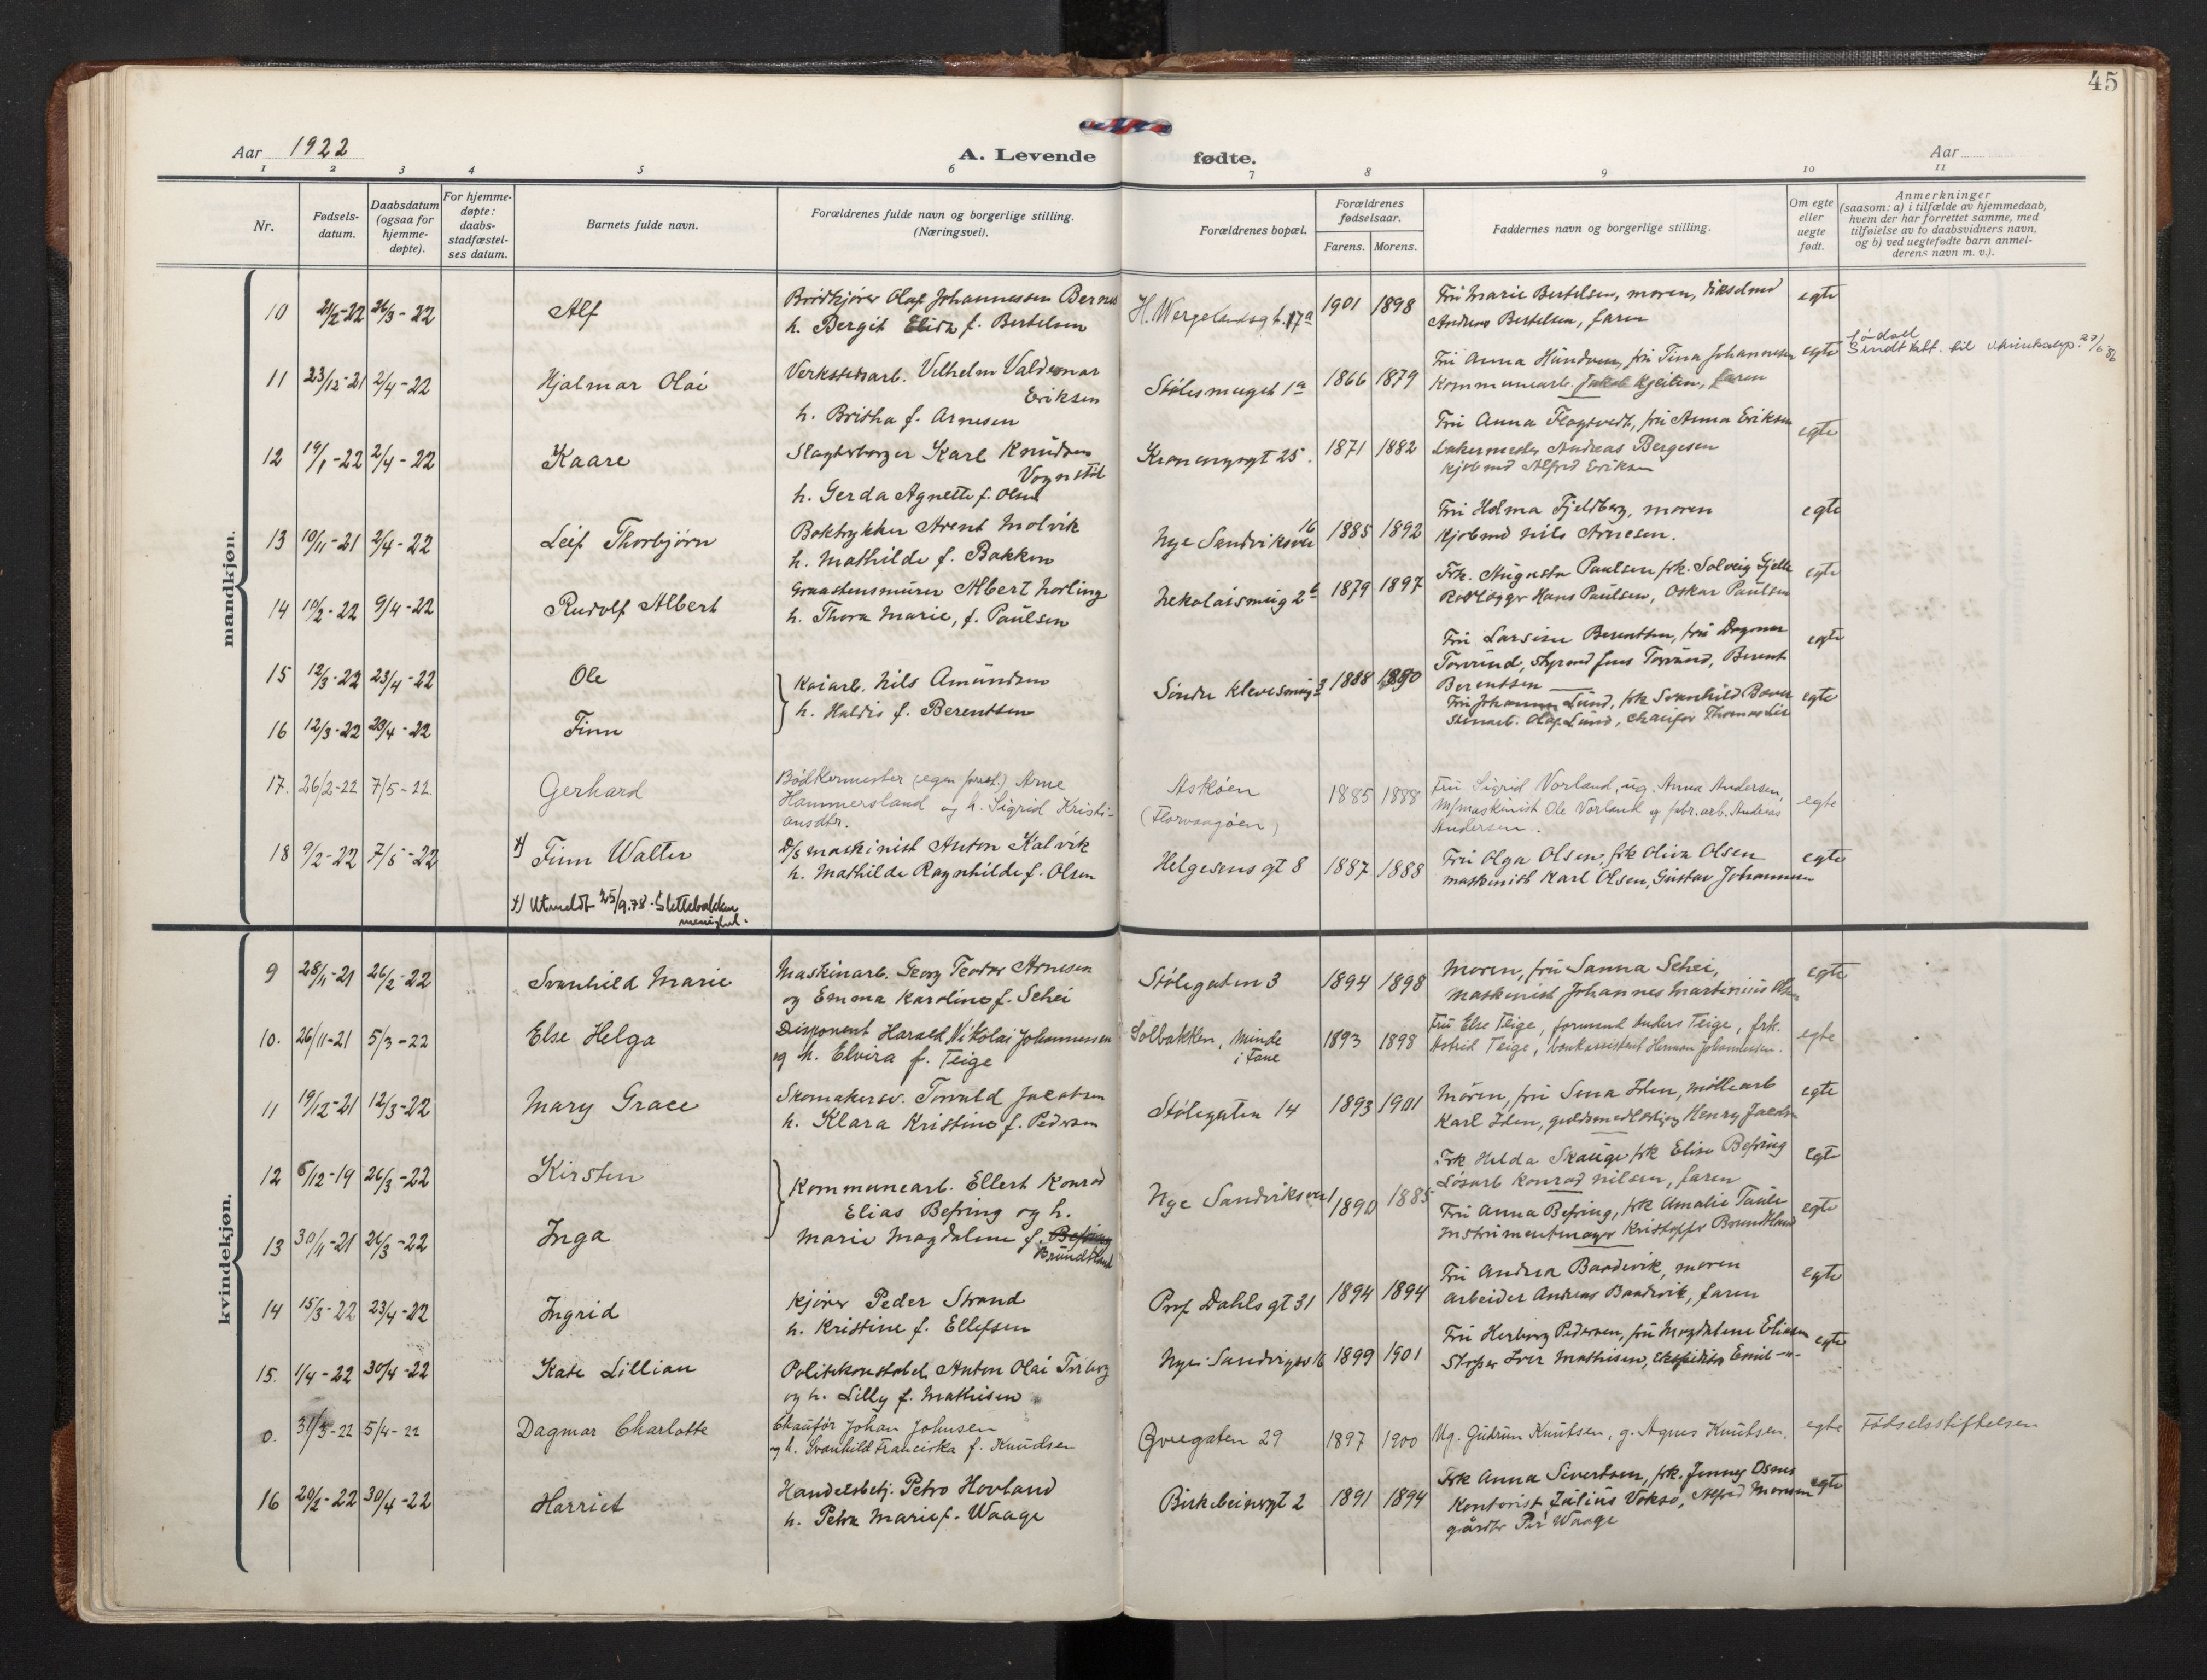 45
Aar 1922
A. Levende fødte.
Aar
1 2 3 4 5 6 7 8 9 10 11
Nr.
Fødsels-
datum.
Daabsdatum
(ogsaa for
hjemme-
døpte).
For hjemme-
døpte:
daabs-
stadfæstel-
ses datum.
Barnets fulde navn.
Forældrenes fulde navn og borgerlige stilling.
(Næringsvei).
Forældrenes bopæl.
Forældrenes
fødselsaar.
Farens. Morens.
Faddernes navn og borgerlige stilling.
Om egte
eller
uegte
født.
Anmerkninger
(saasom: a) i tilfælde av hjemmedaab,
hvem der har forrettet samme, med
tilføielse av to daabsvidners navn,
og b) ved uegtefødte barn anmel-
derens navn m. v.).
mandkjøn.
10 21/2-22 26/3-22 Alf
Brødkjører Olaf Johannessen Bernes
h. Bergit Elida f. Bertelsen
H. Wergelandsgt. 17a 1901 1898
Fru Marie Bertelsen, moren,
Andreas Bertelsen, faren
egte
11 23/12-21 2/4-22 Hjalmar Olai
Verkstedsarb. Vilhelm Valdemar
Eriksen
h. Britha f. Arnesen
Stølesmuget 1a 1866 1879
Fru Anna Hundven, fru Tina Johannesen
Kommunearb. Jakob Kjeilen, faren
egte
12 19/1-22 2/4-22 Kaare
Slagterborger Karl Knudsen
Vognstøl
h. Gerda Agnette f. Olsen
Kroneneggt 25. 1871 1882
Fru Anna Flagtvedt, fru Anna Eriksen
Bakermester Andreas Bergesen
Kjøbmd Alfred Eriksen
egte
13 10/11-21 2/4-22 Leif Thorbjørn
Boktrykker Arent Molvik
h. Mathilde f. Bakken
Nye Sandviksvei 16 1885 1892
Fru Helma Fjeldberg, moren
Kjøbmd Nils Arnesen.
egte
14 10/2-22 9/4-22 Rudolf Albert
Graastensmurer Albert Norling
h. Thora Marie, f. Paulsen
Nekolaismug 2b 1879 1897
Frk. Augusta Paulsen frk. Solveig Gjelle
Rørlægger Hans Paulsen, Oskar Paulsen
egte
15 12/3-22 23/4-22 Ole
Kaiarb. Nils Amundsen
h. Haldis f. Berentsen
Søndre Klevesmug 3 1888 1890
Fru Larsine Berentsen, fru Dagmar
Torsund, styrmd Jens Torsund, Berent
Berentsen
egte
16 12/3-22 23/4-22 Finn
Fru Johanne Lund, frk Svanhild Bower
Stenarb. Olaf Lund, chaufør Thomas Lie
egte
17. 26/2-22 7/5-22. Gerhard
Bødkermester (egen forret.) Arne
Hammersland og h. Sigrid Kristi-
ansdtr.
Askøen
(Florvaagøen)
1885 1888
Fru Sigrid Vorland, ug. Anna Andersen,
M/maskinist Ole Vorland og fabr.arb. Andreas
Andersen.
egte
18 9/2-22 7/5-22 x) Finn Walter
D/s maskinist Anton Kalvik
h. Mathilde Ragnhilde f. Olsen
Helgesens gt 8 1887 1888
Fru Olga Olsen, frk Oliva Olsen
maskinist Karl Olsen, Gustav Johannesen
egte
x) Utmeldt 25/9.78. Slettebakken
menighet.
kvindekjøn.
9 28/11-21 26/2-22 Svanhild Marie
Maskinarb. Georg Teodor Arnesen
og Emma Karoline f. Schei
Stølegaten 3 1894 1898
Moren, fru Sanna Schei,
Maskinist Johannes Martinius Olsen
egte
10. 26/11-21 5/3-22 Else Helga
Disponent Harald Nikolai Johannessen
og h. Elvira f. Teige
Solbakken, Minde
i Fane
1893 1898
Fru Else Teige, formand Anders Teige, frk.
Astrid Teige, bankassistent Herman Johannesen.
egte
11 19/12-21 12/3-22 Mary Grace
Skomakersv. Torvald Jacobsen
h. Klara Kristine f. Pedersen
Stølegaten 14 1893 1901
Moren, fru Sena Iden, møllearb
Karl Iden, guldsmed Henry Jacobsen
egte
12 6/12-19 26/3-22 Kirsten
Kommunearb. Ellert Konrad
Elias Befring og h.
Marie Magdalene f. Befring
Brundtland
Nye Sandviksvei 1 1890 1885
Frk Helda Skauge frk Elise Befring
Løsarb Konrad Nilsen, faren
egte
13 30/11-21 26/3-22 Inga
Fru Anna Befring, frk Amalie Taule
Instrumentmager Kristoffer Brundtland
egte
14 15/3-22 23/4-22 Ingrid
Kjører Peder Strand
h. Kristine f. Ellefsen
Prof Dahls gt 31 1894 1894
Fru Andrea Baardvik, moren
Arbeider Andreas Baardvik, faren
egte
15. 1/4-22 30/4-22 Kate Lillian
Politikonstabel Anton Olai Friberg
og h. Lilly f. Mathisen
Nye Sandvigsv 16 1899 1901
Fru Herborg Pedersen, fru Magdalene Eliasen
Støper Iver Mathisen, Ekspeditør Emil -"-
egte
0. 31/3-22 5/4-22 Dagmar Charlotte
Chaufør Johan Johnsen
og h. Svanhild Franciska f. Knudsen
Øvregaten 29 1897 1900
Ug. Gudrun Knutsen, g. Agnes Knutsen.
egte Fødselsstiftelsen
16 20/2-22 30/4-22 Harriet
Handelsbetj. Petro Hovland
h. Petra Marie f. Waage
Birkebeinergt 2 1891 1894
Frk Anna Sivertsen, frk. Jenny Osnes
Kontorist Julius Vokso, Alfred Monsen
gårdbr Per Waage
egte